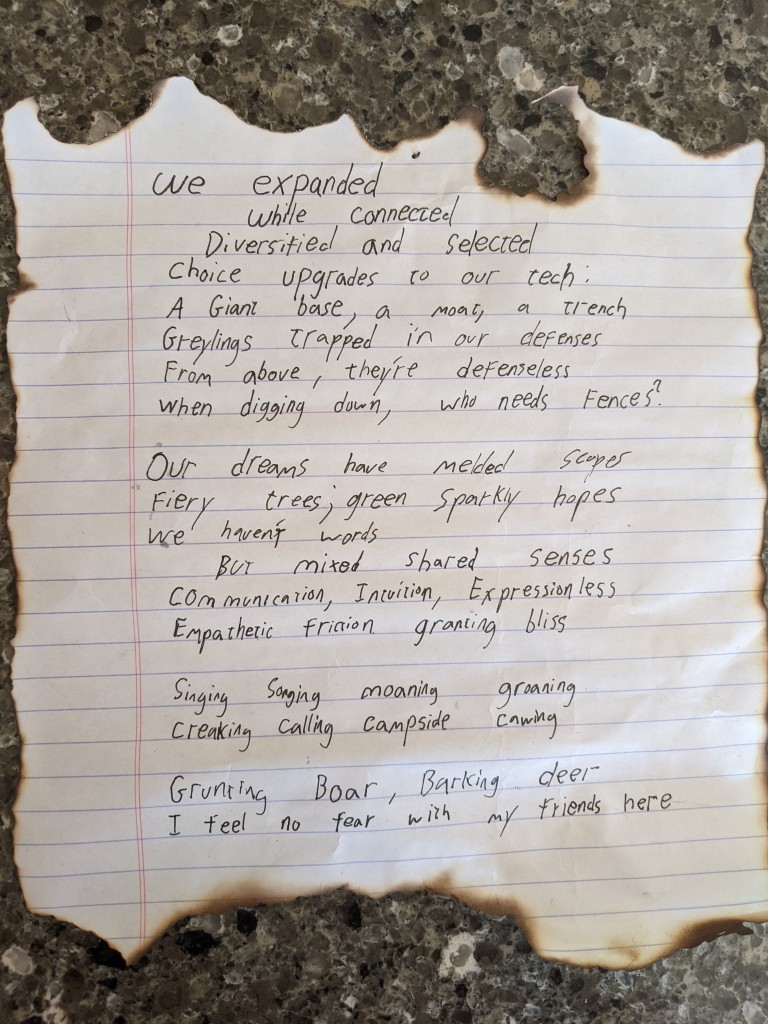 We expanded
While connected
Diversified and selected
Choice upgrades to our tech:
A Giant base, a moat, a trench
Greylings trapped in our defenses
From above, they're defenseless
When digging down, who needs Fences?
Our dreams have melded scopes
Fiery trees; green sparkly hopes
We haven't words
But mixed shared senses
Communication, Intuition, Expressionless
Empathetic friction granting bliss
Singing Songing moaning groaning
Creaking calling campside cawing
Grunting Boar, Barking deer
I feel no fear with my friends here